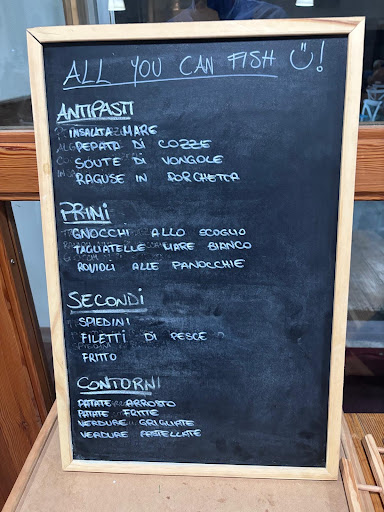 ALL YOU CAN FISH !
ANTIPASTI
INSALATA MARE
PEPATA DI COZZE
SOUTE DI VONGOLE
RAGUSE IN PORCHETTA
PRIMI
GNOCCHI ALLO SCOGLIO
TAGLIATELLE MARE BIANCO
RAVIOLI ALLE PANOCCHIE
SECONDI
SPIEDINI
FILETTI DI PESCE
FRITTO
CONTORNI
PATATE ARROSTO
PATATE FRITTE
VERDURE GRIGLIATE
VERDURE